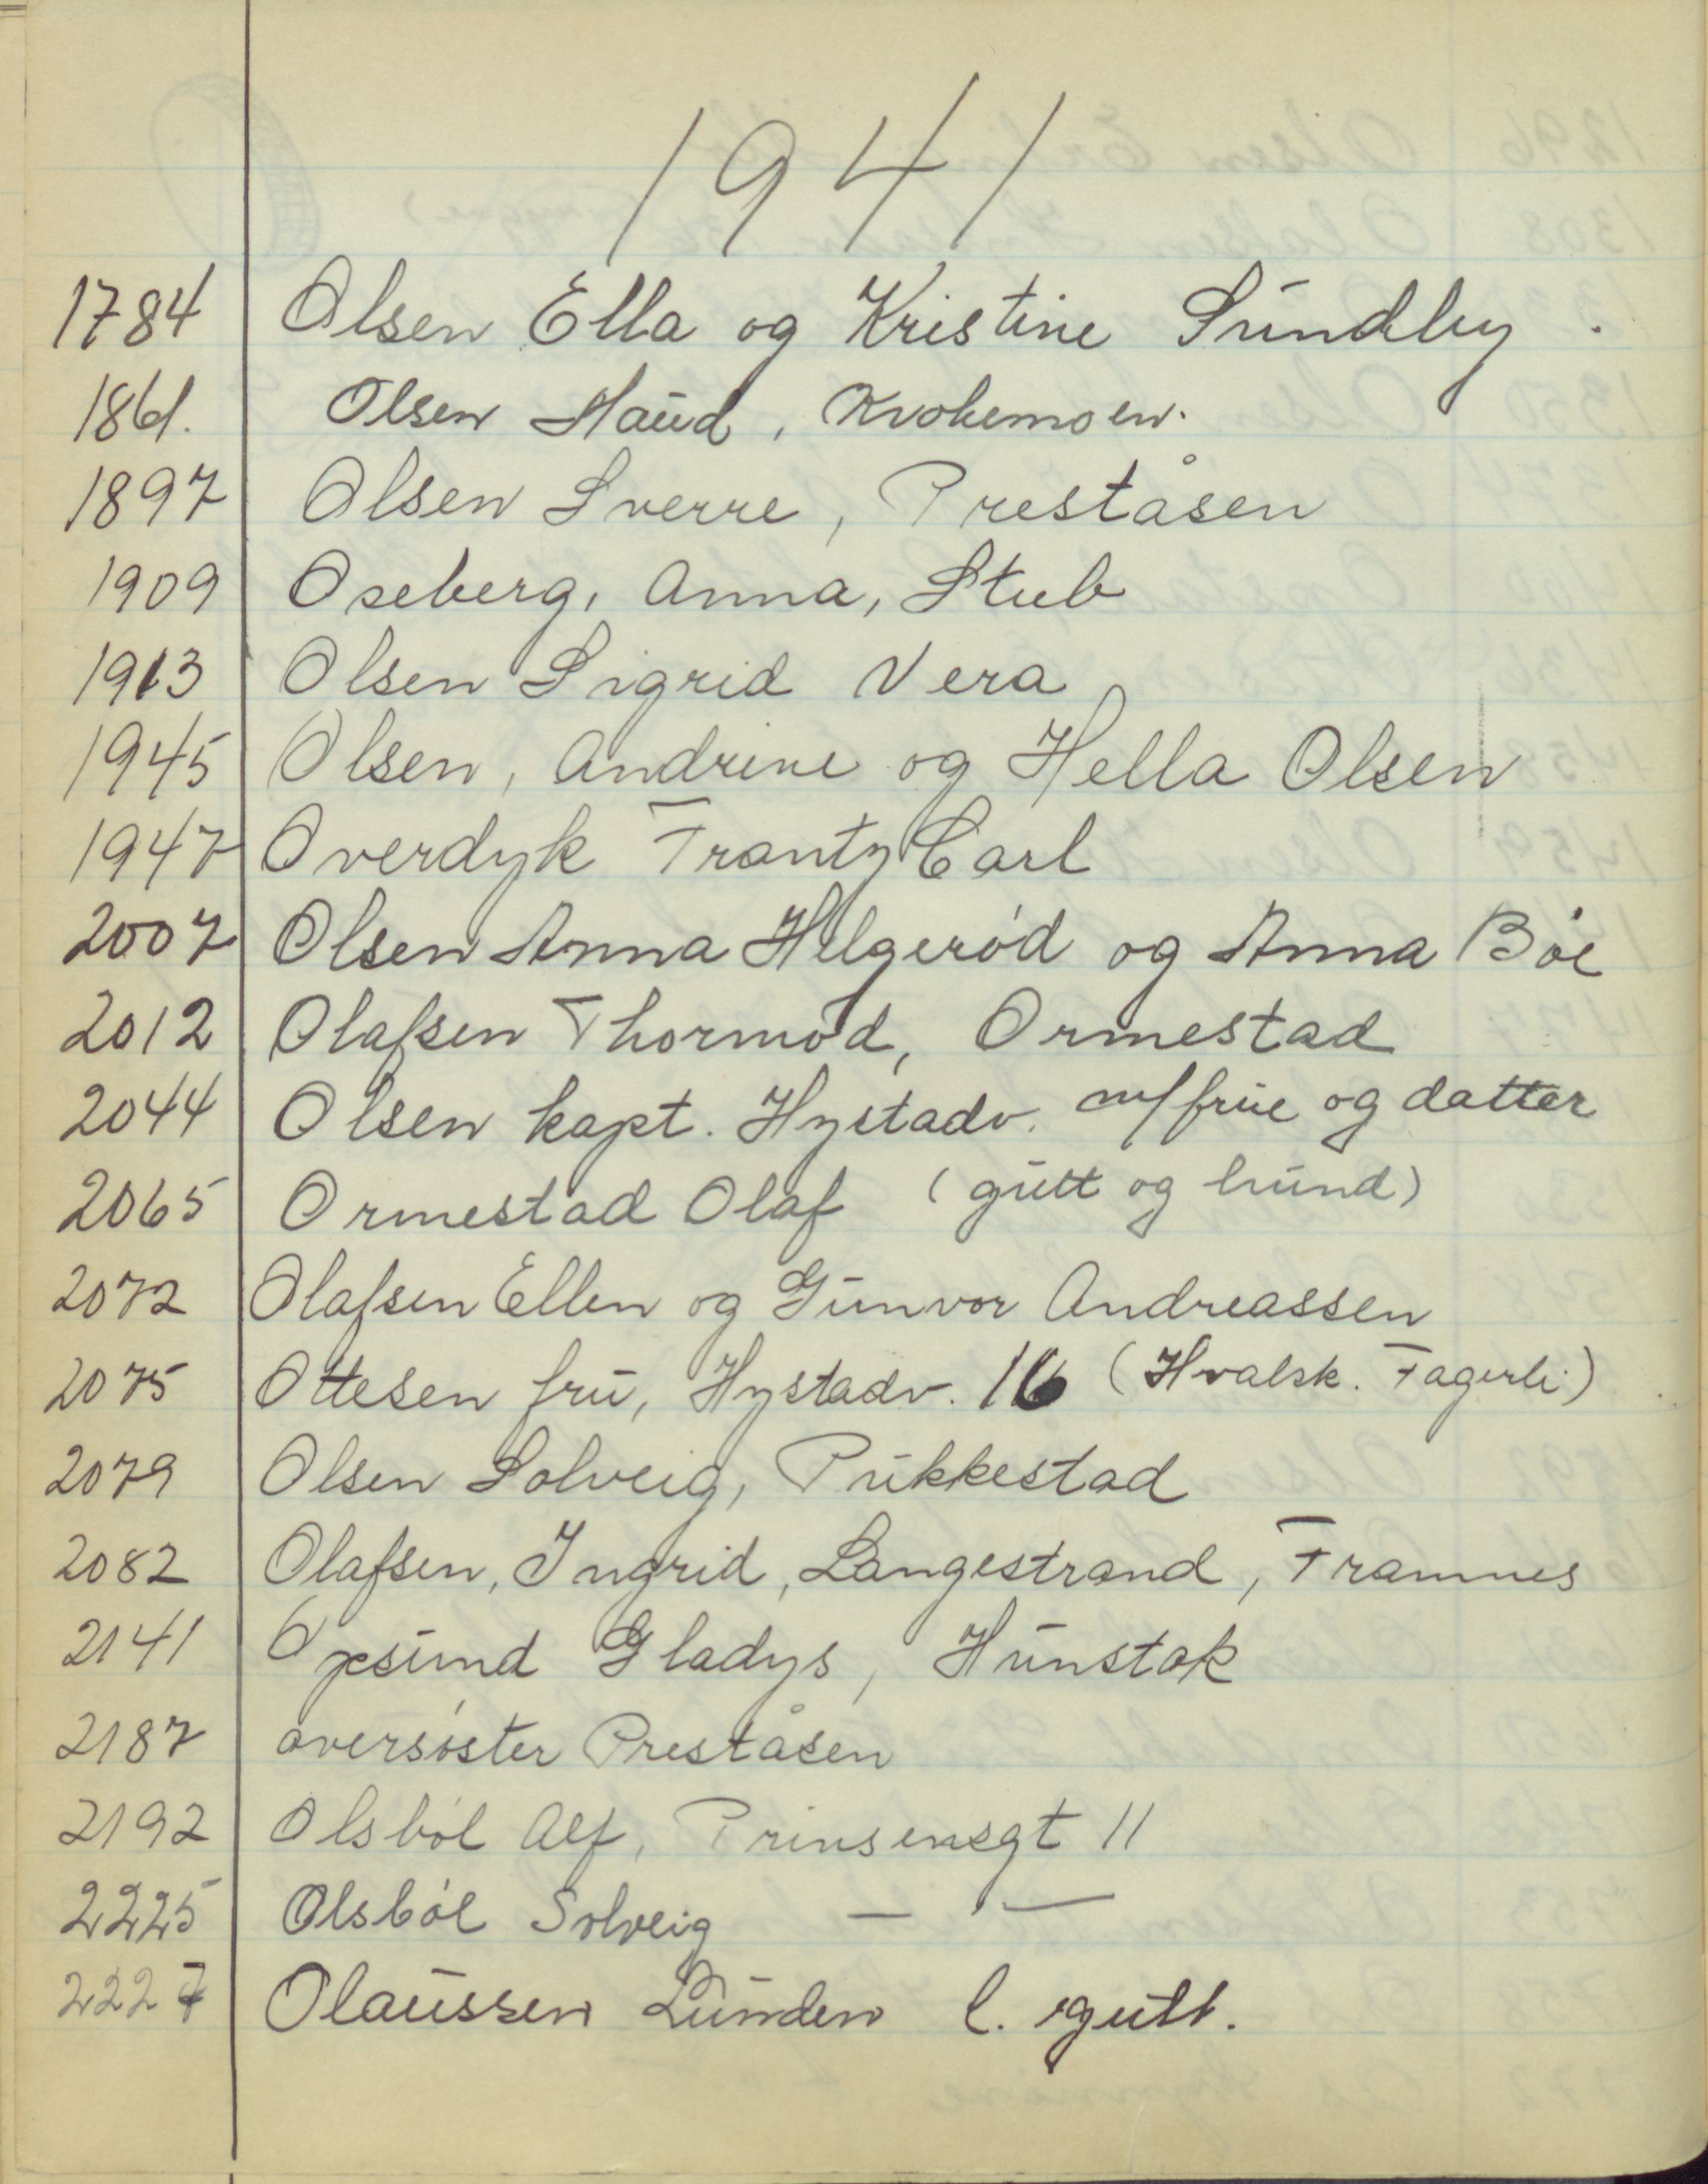 1941
1784 Olsen Ella og Kristine Sundby.
1861. Olsen Maud, Krokemoen.
1897 Olsen Sverre, Preståsen
1909 Oseberg, Anna, Stub
1913 Olsen Sigrid Vera
1945 Olsen, Andrine og Hella Olsen
1947 Overdyk Frantz Carl
2007 Olsen Anna Helgerød og Anna Bøe
2012 Olafsen Thormod, Ormestad
2044 Olsen kapt. Hystadv. m/frue og datter
2065 Ormestad Olaf (gutt og hund)
2072 Olafsen Ellen og Gunvor Andreassen
2075 Ottesen fru, Hystadv. 16 (Hvalsk. Fagerli)
2079 Olsen Solveig, Pukkestad
2082 Olafsen, Ingrid, Langestrand, Framnes
2141 Opsund Gladys, Hunstok
2187 oversøster Preståsen
2192 Olsbøl Alf, Prinsensgt 11
2225 Olsbøl Solveig — " —
2227 Olaussen Lunden l. gutt.